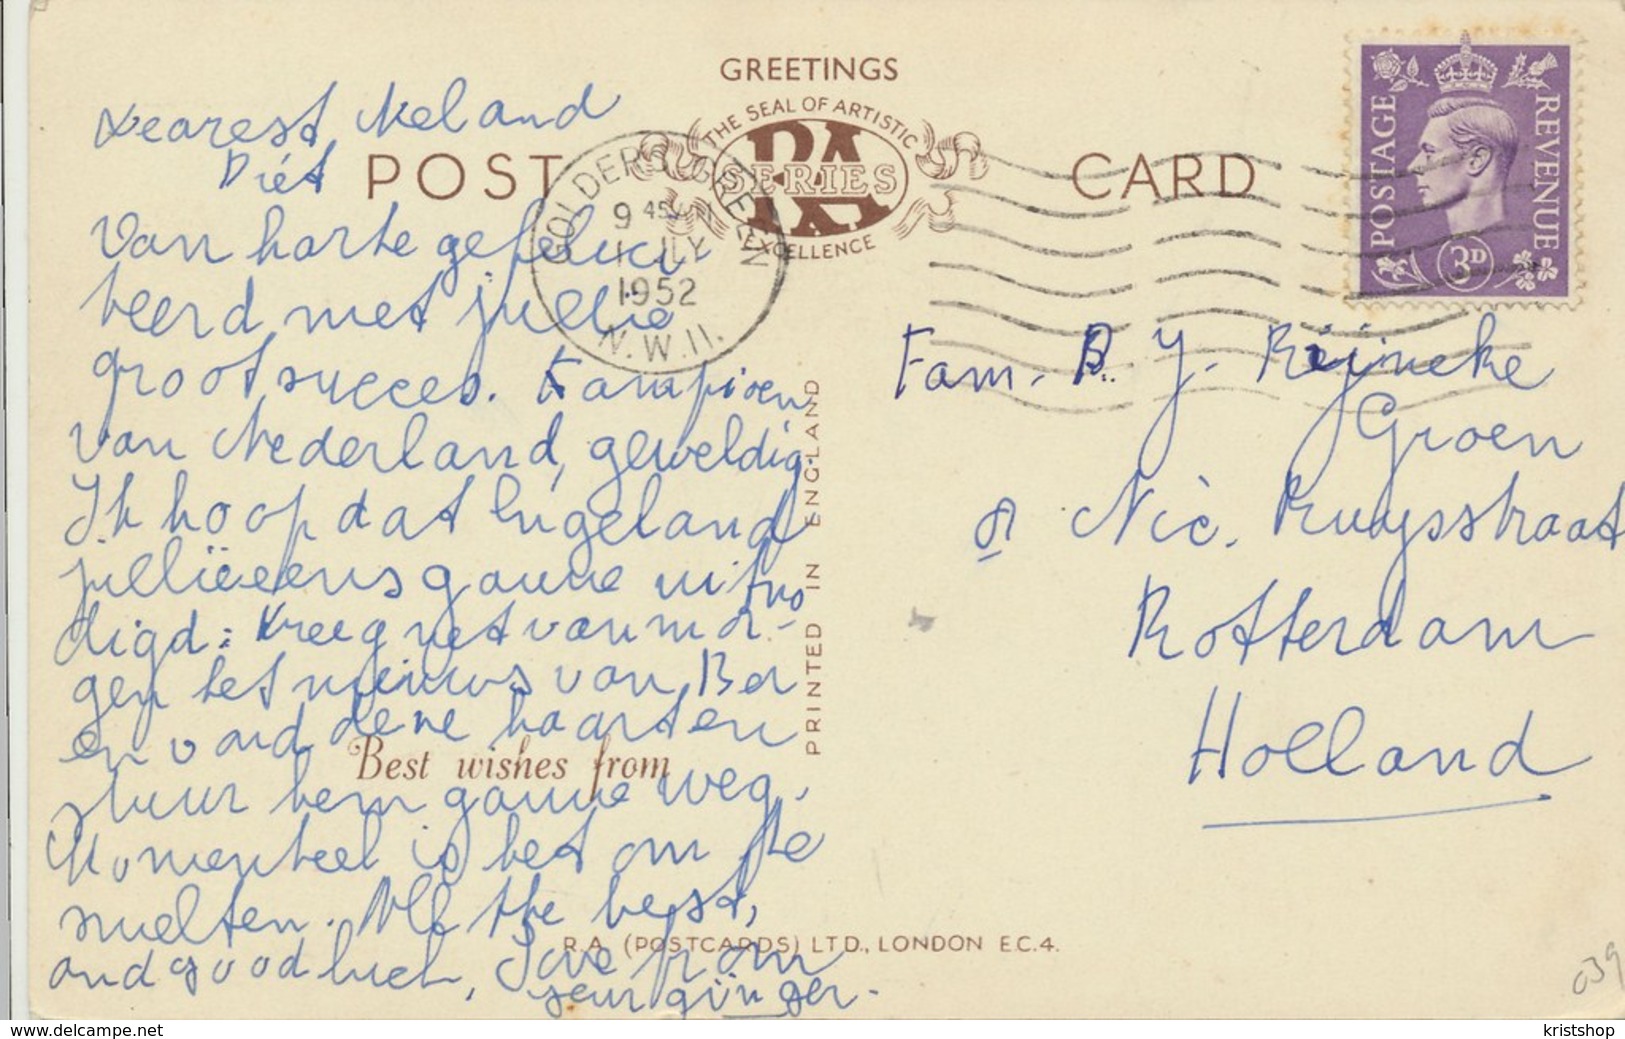 GREETINGS
THE SEAL OF ARTISTIC
RA
SERIES
EXCELLENCE
POST CARD
GOLDERS GREEN
9 45 AM
1 JLY
1952
N.W.11.
POSTAGE REVENUE
3D
Dearest Nel and
Piet
Van harte gefelici
teerd met jullie
groot succes. Kampioen
van Nederland, geweldig.
Ik hoop dat Engeland
jullie eens gauw uitno
digd: Kreeg net vanmor-
gen het nieuws van Ber
en vond deze kaarten
stuur hem gauw weg.
Momenteel is het om te
smelten. All the best,
and good luck, Love from
your ginger.
Best wishes from
PRINTED IN ENGLAND
R.A. (POSTCARDS) LTD., LONDON E.C.4.
Fam. B. J. Reijneke
Groen
Nic. Ruysstraat
Rotterdam
Holland
039
www.delcampe.net
kristshop